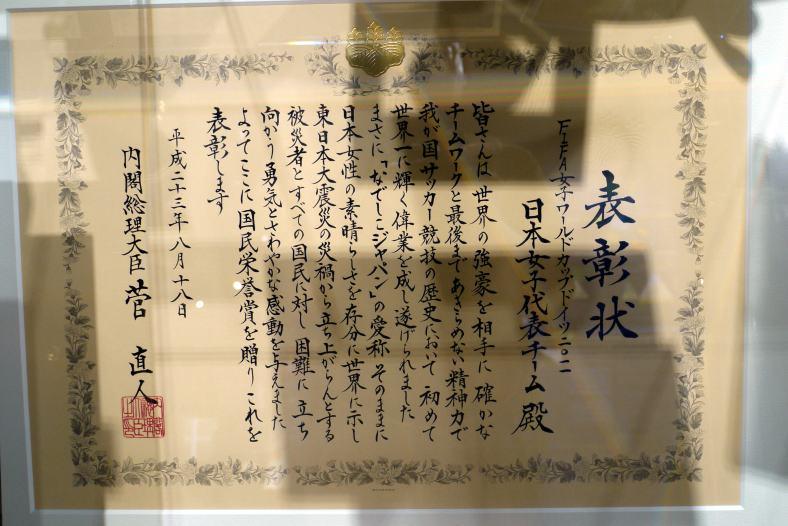 表彰状
FIFA女子ワールドカップドイツ二〇一一
日本女子代表チーム 殿
皆さんは 世界の強豪を相手に 確かな
チームワークと最後まであきらめない精神力で
我が国サッカー競技の歴史において 初めて
世界一に輝く偉業を成し遂げられました
まさに「なでしこジャパン」の愛称 そのままに
日本女性の素晴らしさを存分に世界に示し
東日本大震災の災禍から立ち上がらんとする
被災者とすべての国民に対し 困難に 立ち
向かう 勇気とさわやかな感動を与えました
よってここに 国民栄誉賞を贈り これを
表彰します
平成二十三年八月十八日
内閣総理大臣 菅 直人